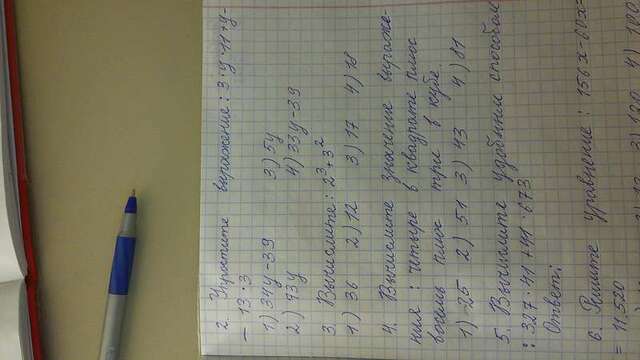 2. Упростите выражение: 3·y·11+y-
- 13·3
1) 34y-39 3) 5y
2) 73y 4) 33y-39
3. Вычислите: 2³+3²
1) 36 2) 12 3) 17 4) 18
4. Вычислите значение выраже-
ния: четыре в квадрате плюс
восемь плюс три в кубе.
1) 25 2) 51 3) 43 4) 81
5. Вычислите удобным способом
: 327·41+41·673
Ответ:
6. Решите уравнение: 156x-60x=
= 11.520